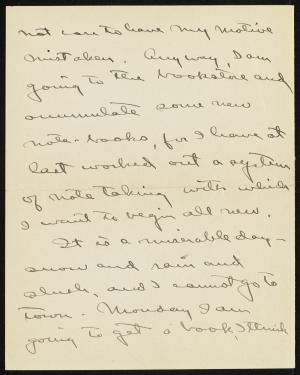 not care to have my motive
mistaken. Anyway, I am
going to the bookstore and
accumulate some new
note-books, for I have at
last worked out a system
of note taking with which
I want to begin all new.
It is a miserable day—
snow and rain and
slush, and I cannot go to
town. Monday I am
going to get a book, I think